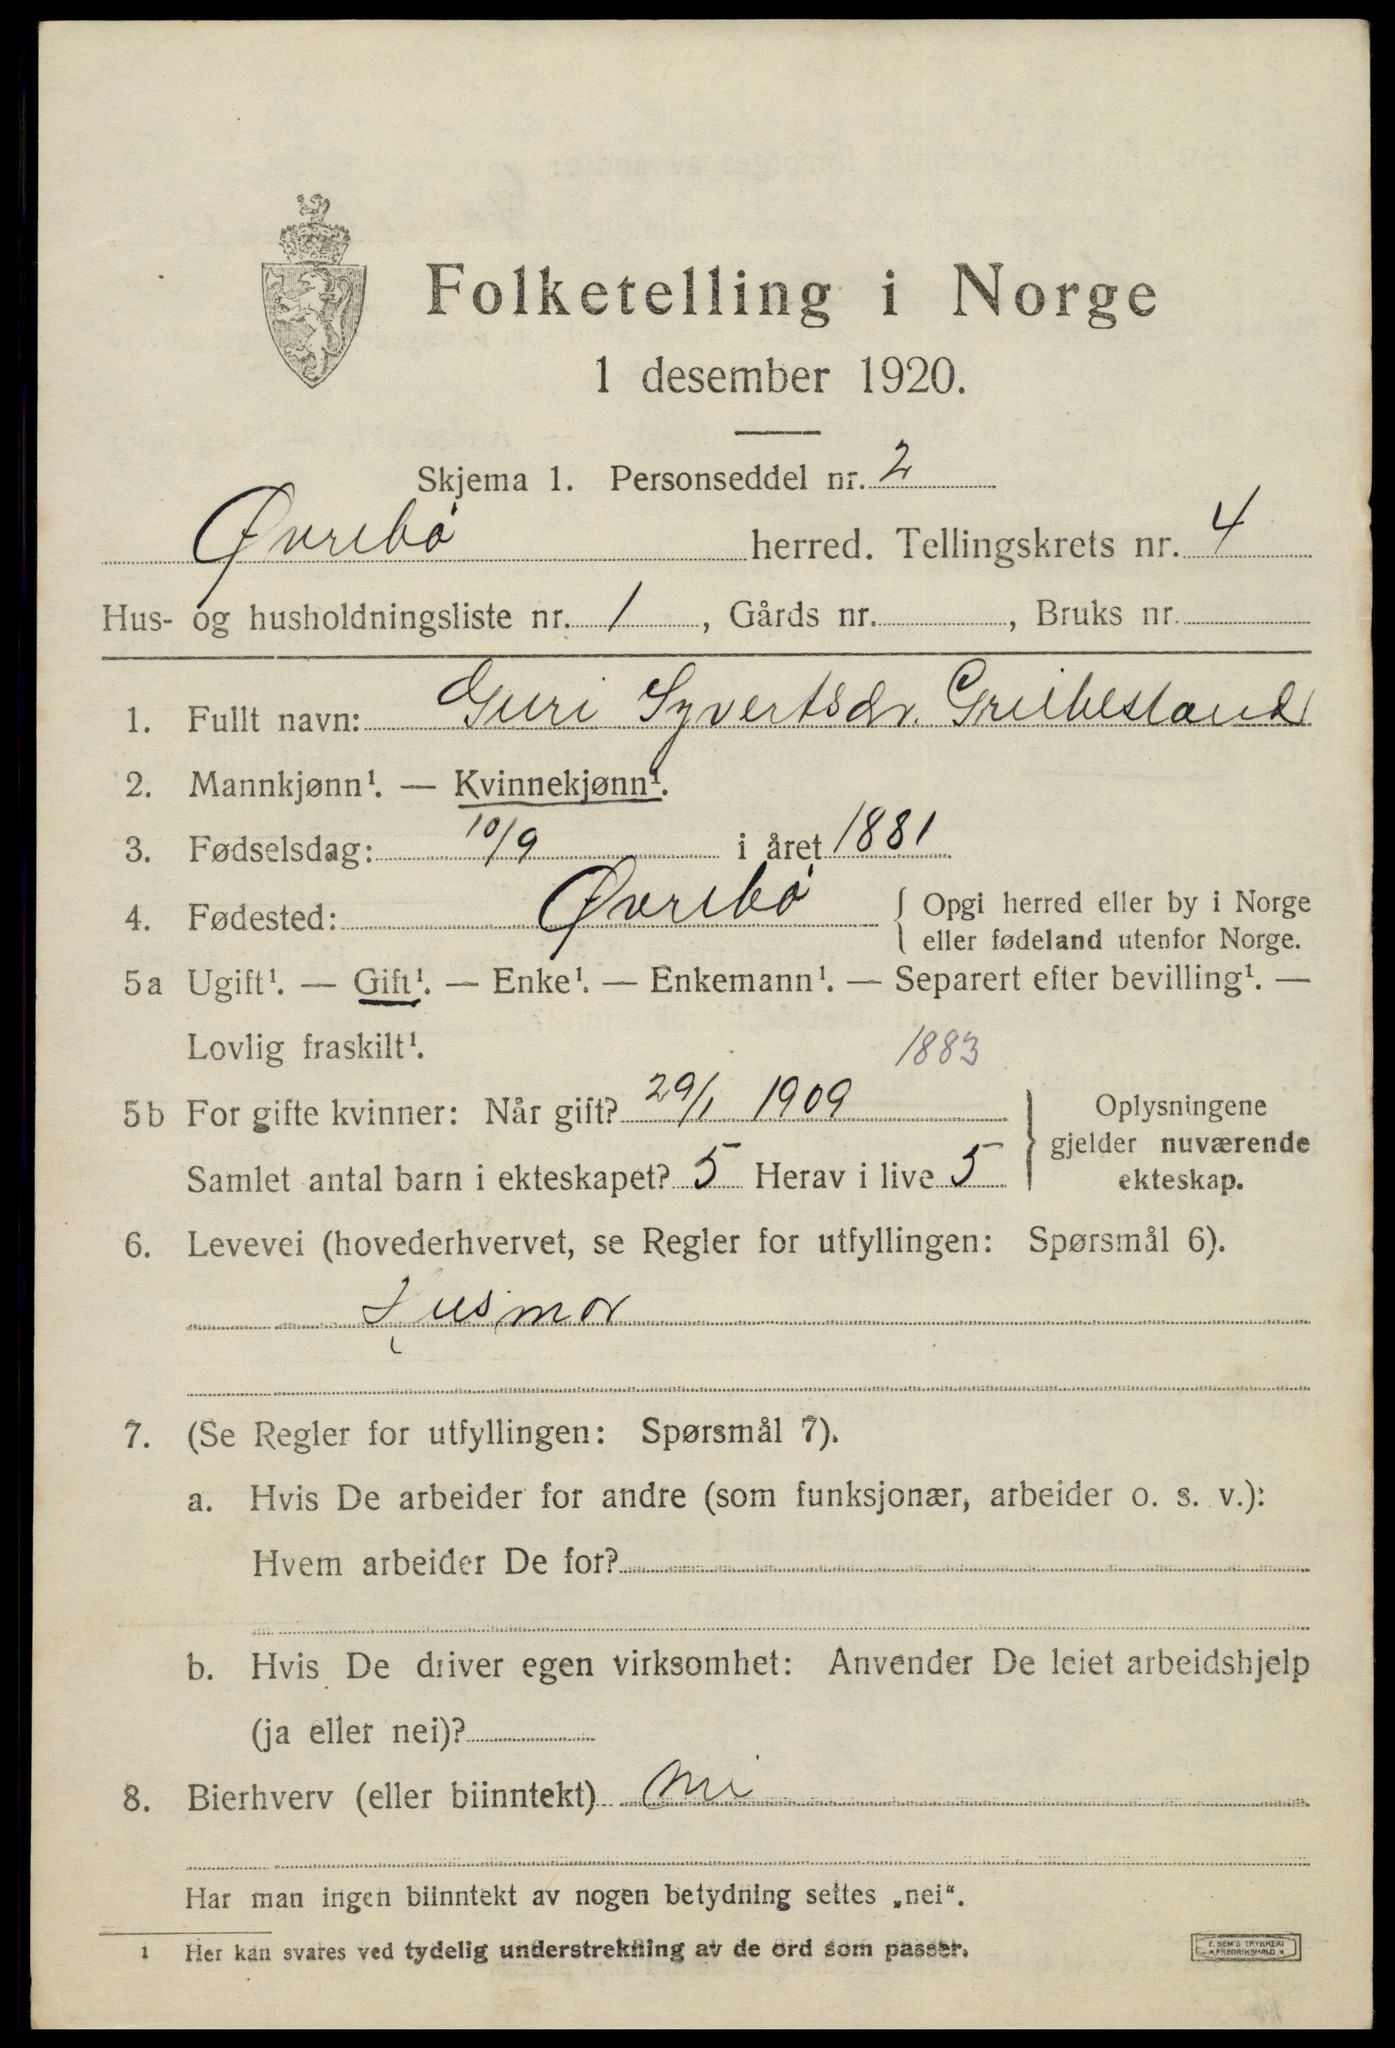 Folketelling i Norge
1 desember 1920.
Skjema 1. Personseddel nr. 2
Øvrebö herred. Tellingskrets nr. 4
Hus- og husholdningsliste nr. 1, Gårds nr. , Bruks nr.
1. Fullt navn: Guri Syvertsdr. Greibesland
2. Mannkjønn¹. — Kvinnekjønn¹.
3. Fødselsdag: 10/9 i året 1881
4. Fødested: Øvrebö { Opgi herred eller by i Norge
eller fødeland utenfor Norge.
5a Ugift¹. — Gift¹. — Enke¹. — Enkemann¹. — Separert efter bevilling¹. —
Lovlig fraskilt¹. 1883
5b For gifte kvinner: Når gift? 29/1 1909
Samlet antal barn i ekteskapet? 5 Herav i live 5
} Oplysningene
gjelder nuværende
ekteskap.
6. Levevei (hovederhvervet, se Regler for utfyllingen: Spørsmål 6).
Husmor
7. (Se Regler for utfyllingen: Spørsmål 7).
a. Hvis De arbeider for andre (som funksjonær, arbeider o. s. v.):
Hvem arbeider De for?
b. Hvis De driver egen virksomhet: Anvender De leiet arbeidshjelp
(ja eller nei)?
8. Bierhverv (eller biinntekt) nei
Har man ingen biinntekt av nogen betydning settes „nei“.
1 Her kan svares ved tydelig understrekning av de ord som passer.
E. SEM'S TRYKKERI
FREDRIKSHALD